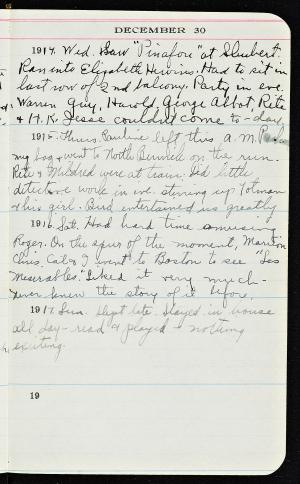 DECEMBER 30
1914. Wed. Saw "Pinafore" at Shubert.
Ran into Elizabeth Had to sit in
last row of 2nd balcony. Party in eve.
Warren Guy, Harold, George Abbot, Rita
& H.K. Jesse couldn't come to-day.
1915. Thurs. Pauline left this a.m.
my bag & went to North Berwick on the run.
Rita & Mildred were at train. Did little
detective work in eve. stirring up
& his girl. Bird entertained us greatly
1916. Sat. Had hard time amusing
Roger. On the spur of the moment, Marion
Chris, Cal & I went to Boston to see "Les
Miserables." Liked it very much.
Never knew the story of it before.
1917. Sun. Slept late. Stayed in house
all day - read & played - nothing
exciting.
19